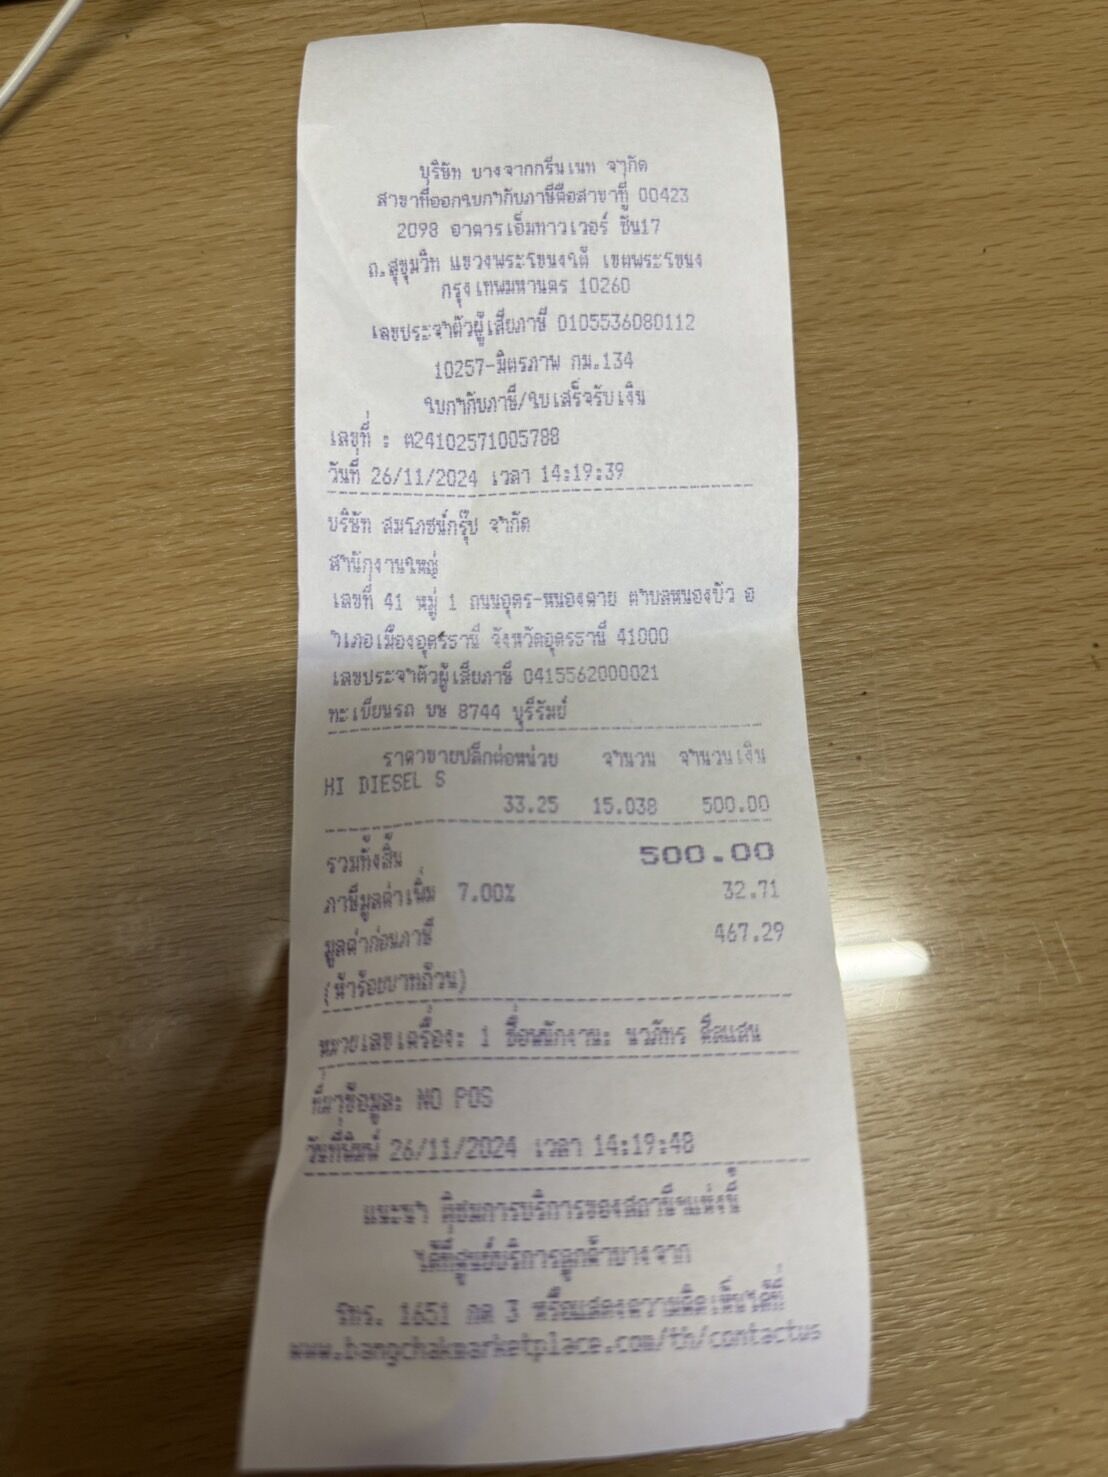 บริษัท บางจากกรีนเนท จำกัด
สาขาที่ออกใบกำกับภาษีคือสาขาที่ 00423
2098 อาคารเอ็มทาวเวอร์ ชั้น17
ถ.สุขุมวิท แขวงพระโขนงใต้ เขตพระโขนง
กรุงเทพมหานคร 10260
เลขประจำตัวผู้เสียภาษี 0105536080112
10257-มิตรภาพ กม.134
ใบกำกับภาษี/ใบเสร็จรับเงิน
เลขที่ : ต24102571005788
วันที่ 26/11/2024 เวลา 14:19:39
บริษัท สมโภชน์กรุ๊ป จำกัด
สำนักงานใหญ่
เลขที่ 41 หมู่ 1 ถนนอุดร-หนองคาย ตำบลหนองบัว อ
ำเภอเมืองอุดรธานี จังหวัดอุดรธานี 41000
เลขประจำตัวผู้เสียภาษี 0415562000021
ทะเบียนรถ บษ 8744 บุรีรัมย์
ราคาขายปลีกต่อหน่วย จำนวน จำนวนเงิน
HI DIESEL S
33.25 15.038 500.00
รวมทั้งสิ้น 500.00
ภาษีมูลค่าเพิ่ม 7.00% 32.71
มูลค่าก่อนภาษี 467.29
(ห้าร้อยบาทถ้วน)
หมายเลขเครื่อง: 1 ชื่อพนักงาน: นวภัทร
ที่มาข้อมูล: NO POS
วันที่พิมพ์ 26/11/2024 เวลา 14:19:48
แนะนำ ติชมการบริการของสถานีฯแห่งนี้
ได้ที่ศูนย์บริการลูกค้าบางจาก
โทร. 1651 กด 3 หรือแสดงความคิดเห็นได้ที่
www.bangchakmarketplace.com/th/contactus